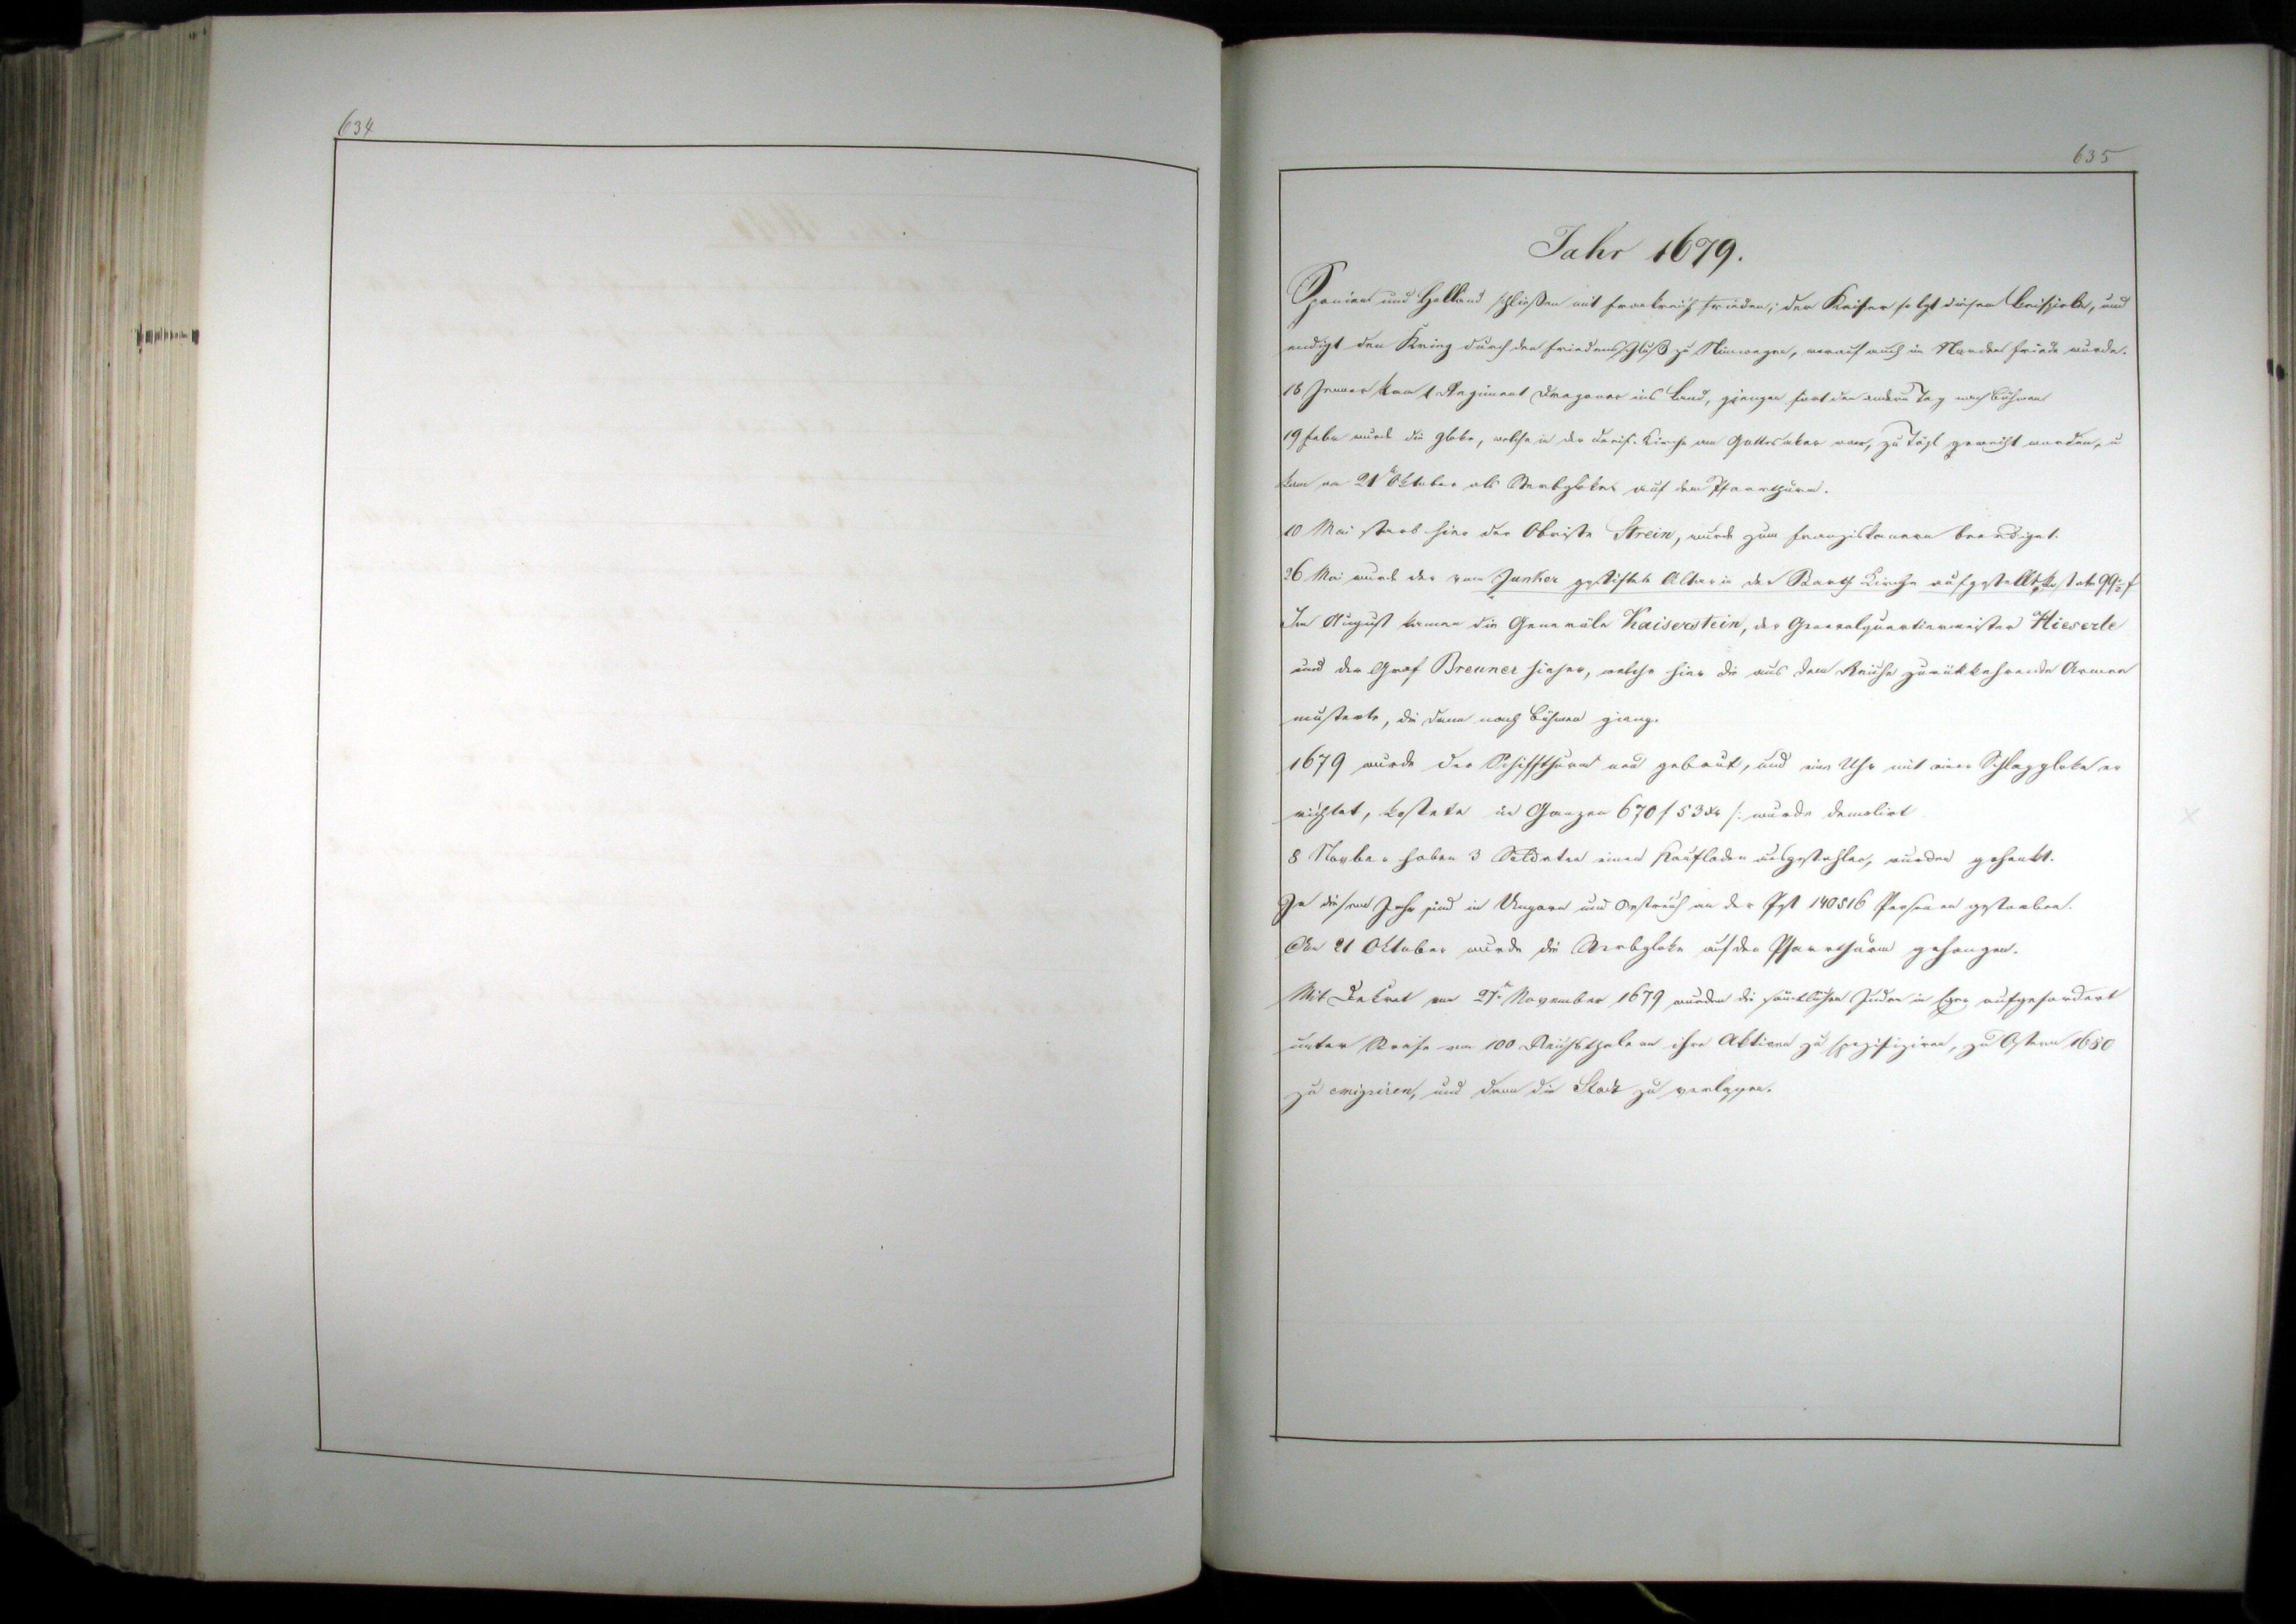 634
635
Jahr 1679.
Spanien und Holland schließen mit Frankreich Frieden; der Kaiser folgt diesem Beispiele, und
endigt den Krieg durch den Friedensschluß zu Nimwegen, worauf auch im Norden Friede wurde.
18 Jenner kam 1 Regiment Dragoner ins Land, giengen fort den andern Tag nach Böhmen
19 Febr wurde die Gloke, welche in der Kirche am Gottesaker war, zu geweiht worden, u
kam am 21t Oktober als Sterbgloke auf dem Pfarrthurm.
10 Mai starb hier der Obriste Strein, wurde zum Franziskanern beerdiget.
26 Mai wurde der vom Junker gestiftete Altar in der Barth Kirche aufgestellt, kostete 99 f
Im August kamen die Generäle Kaiserstein, der Generalquartiermeister Hieserle
und der Graf Breuner hieher, welche hier die aus dem Reiche zurükkehrende Armee
musterte, die dann nach Böhmen gieng.
1679 wurde der Schiffthurm neu gebaut, und eine Uhr mit einer Schlaggloke er
richtet, kostete im Ganzen 670 f 53 xr /: wurde demolirt
8 Novber haben 3 Soldaten einen Kaufladen ausgestohlen, wurden gehenkt.
In diesem Jahr sind in Ungarn und Oestreich an der Pest 140516 Personen gestorben.
Den 21 Oktober wurde die Sterbgloke auf den Pfarrthurm gehangen.
Mit Dekret vom 27t November 1679 wurden die sämtlichen Juden in Eger aufgefordert
unter Strafe von 100 Reichsthalern ihre Aktiven zu spezifiziren, zu Ostern 1680
zu emigriren, und dann die Stadt zu verlassen.